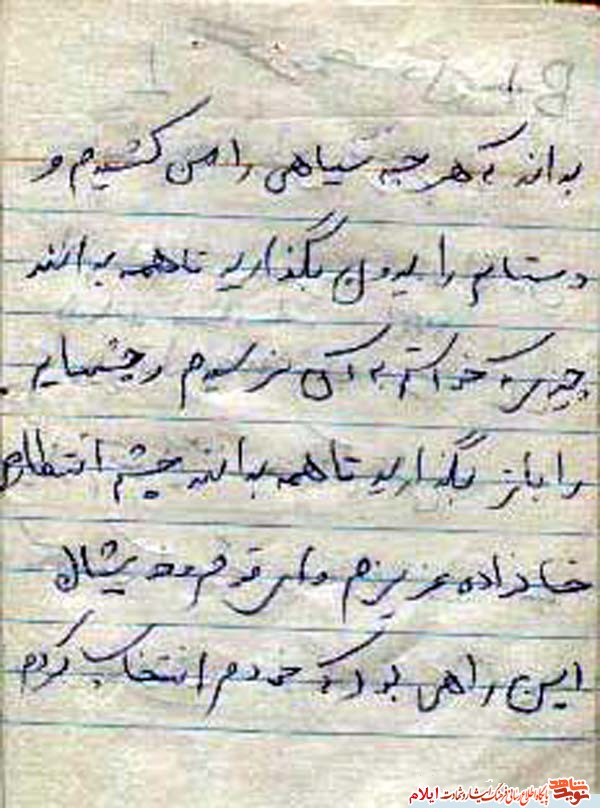 بدانند که هر چه سیاهی را من کشیدم و
دستانم را بیرون بگذارید تا همه بدانند
چیزی که خواستم به آن نرسیدم و چشمانم
را باز بگذارید تا همه بدانند چشم انتظار
خانواده عزیزم و ای قوم و خویشان
این راهی بود که خودم انتخاب کردم
نوید شاهد
پایگاه اطلاع رسانی فرهنگ ایثار و شهادت ایلام